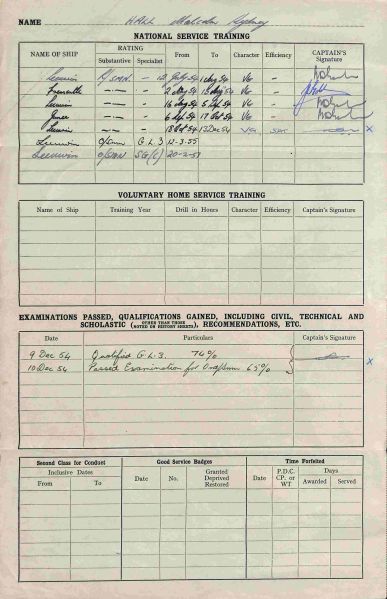 NAME HALL Malcolm Sydney
NATIONAL SERVICE TRAINING
NAME OF SHIP RATING From To Character Efficiency CAPTAIN'S Signature
Substantive Specialist
Leeuwin SMN - 12 July 54 1 Aug 54 VG -
Fremantle -"- -"- 2 Aug 54 15 Aug 54 VG -
Leeuwin -"- -"- 16 Aug 54 5 Sep 54 VG -
Junee -"- -"- 6 Sep 54 17 Oct 54 VG -
Leeuwin -"- -"- 18 Oct 54 13 Dec 54 VG SAT x
Leeuwin O/Smn G L 3 12-3-55
Leeuwin O/SMN SG(C) 20-2-57
VOLUNTARY HOME SERVICE TRAINING
Name of Ship Training Year Drill in Hours Character Efficiency Captain's Signature
EXAMINATIONS PASSED, QUALIFICATIONS GAINED, INCLUDING CIVIL, TECHNICAL AND
SCHOLASTIC (OTHER THAN THOSE NOTED ON HISTORY SHEETS), RECOMMENDATIONS, ETC.
Date Particulars Captain's Signature
9 Dec 54 Qualified G L 3. 74%
10 Dec 54 Passed Examination for Ord/Smn 65% x
Second Class for Conduct Good Service Badges Time Forfeited
Inclusive Dates Date No. Granted Deprived Restored Date P.D.C. CP. or WT Days
From To Awarded Served